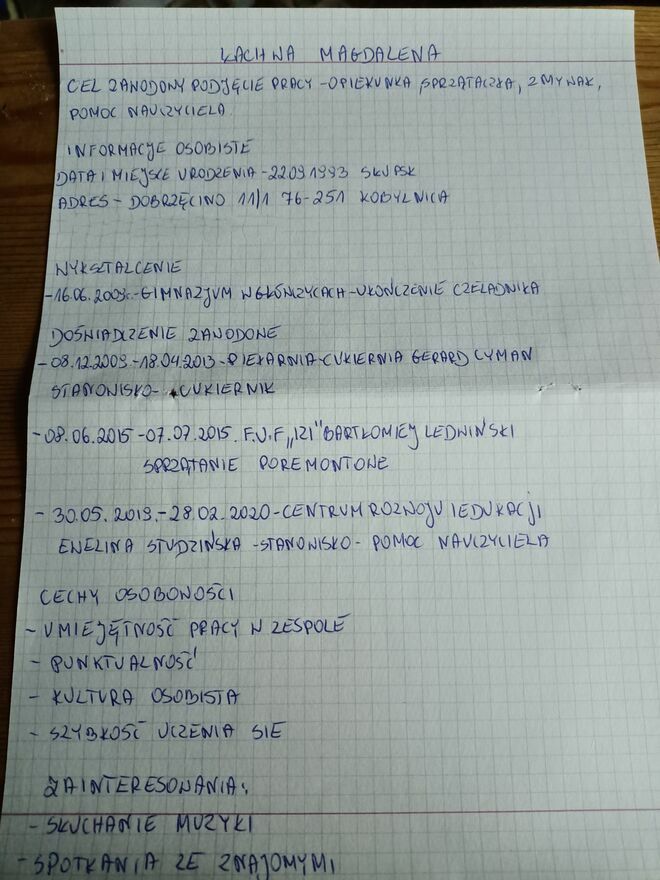 ŁACHWA MAGDALENA
CEL ZAWODOWY PODJĘCIE PRACY - OPIEKUNKA, SPRZĄTACZKA, ZMYWAK,
POMOC NAUCZYCIELA.
INFORMACJE OSOBISTE
DATA I MIEJSCE URODZENIA - 22091993 SŁUPSK
ADRES - DOBRZĘCINO 11/1 76-251 KOBYLNICA
WYKSZTAŁCENIE
- 16.06.2009r. - GIMNAZJUM W GŁÓWCZYCACH - UKOŃCZENIE CZELADNIKA
DOŚWIADCZENIE ZAWODOWE
- 08.12.2009. - 18.04.2013 - PIEKARNIA-CUKIERNIA GERARD CYMAN
STANOWISKO - CUKIERNIK
- 08.06.2015 - 07.07.2015. F.U.F „IZI" BARTŁOMIEJ LEDWIŃSKI
SPRZĄTANIE POREMONTOWE
- 30.05.2019. - 28.02.2020 - CENTRUM ROZWOJU I EDUKACJI
EWELINA STUDZIŃSKA - STANOWISKO - POMOC NAUCZYCIELA
CECHY OSOBOWOŚCI
- UMIEJĘTNOŚĆ PRACY W ZESPOLE
- PUNKTUALNOŚĆ
- KULTURA OSOBISTA
- SZYBKOŚĆ UCZENIA SIE
ZAINTERESOWANIA:
- SŁUCHANIE MUZYKI
- SPOTKANIA ZE ZNAJOMYMI